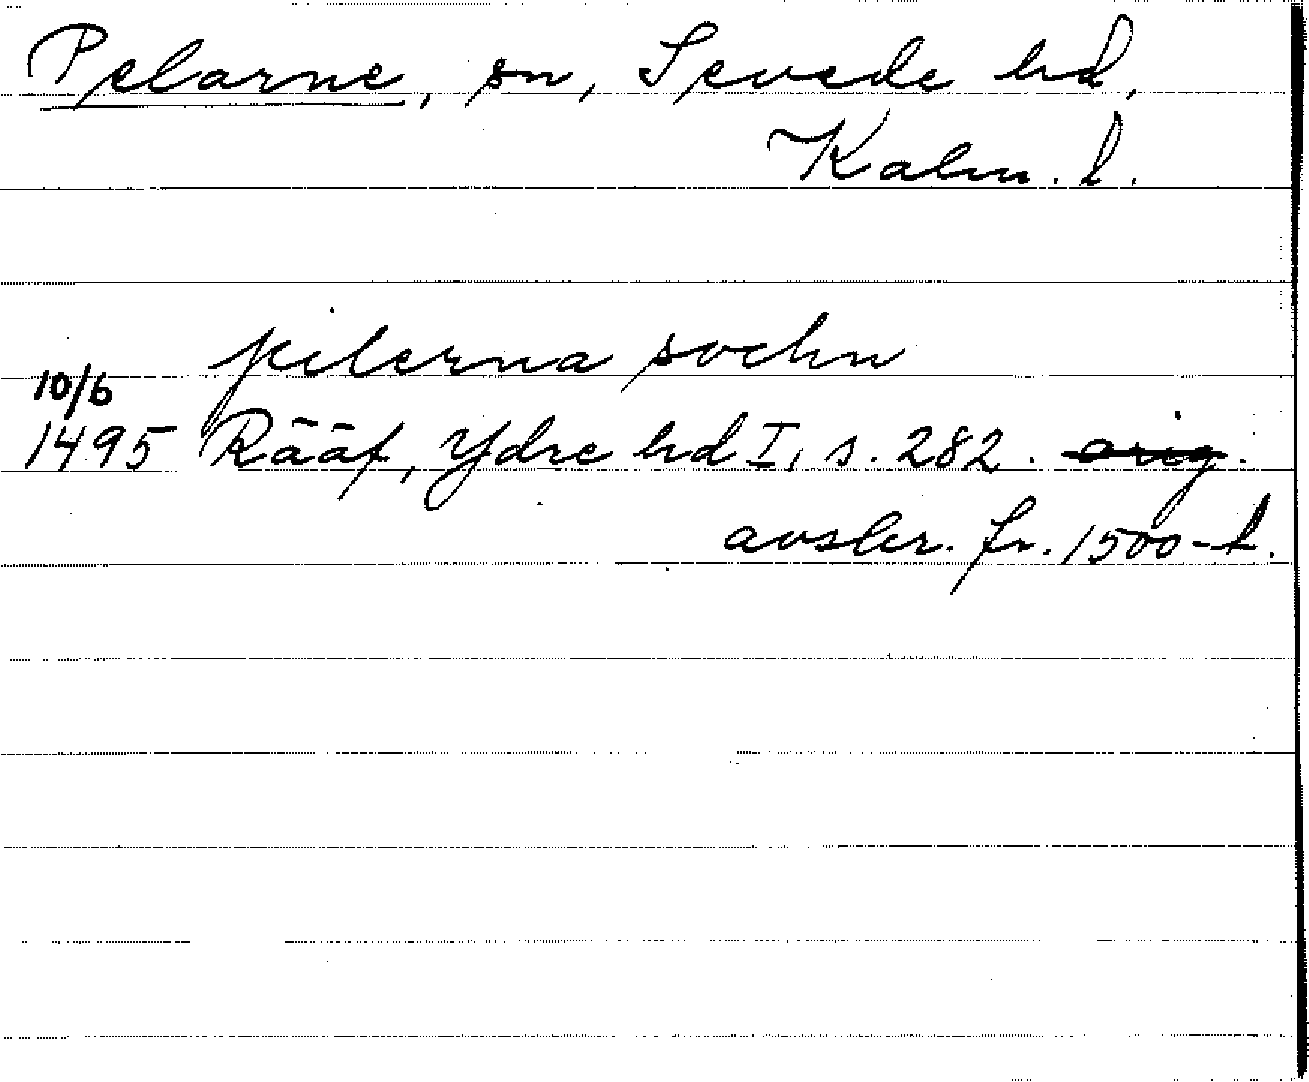 Pelarne, sn, Sevede hd,
Kalm. l.
pilerna sochn
10/6
1495 Rääf, Ydre hd I, s. 282. orig.
avskr. fr. 1500-t.